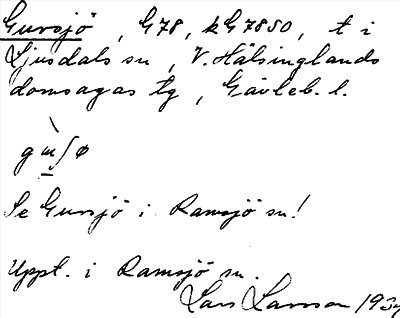 Gursjö, G78, kG7850, t i
Ljusdals sn, V. Hälsinglands
domsagas tg, Gävleb. l.
Se Gursjö i Ramsjö sn!
Uppt. i Ramsjö sn.
Lars Larsson